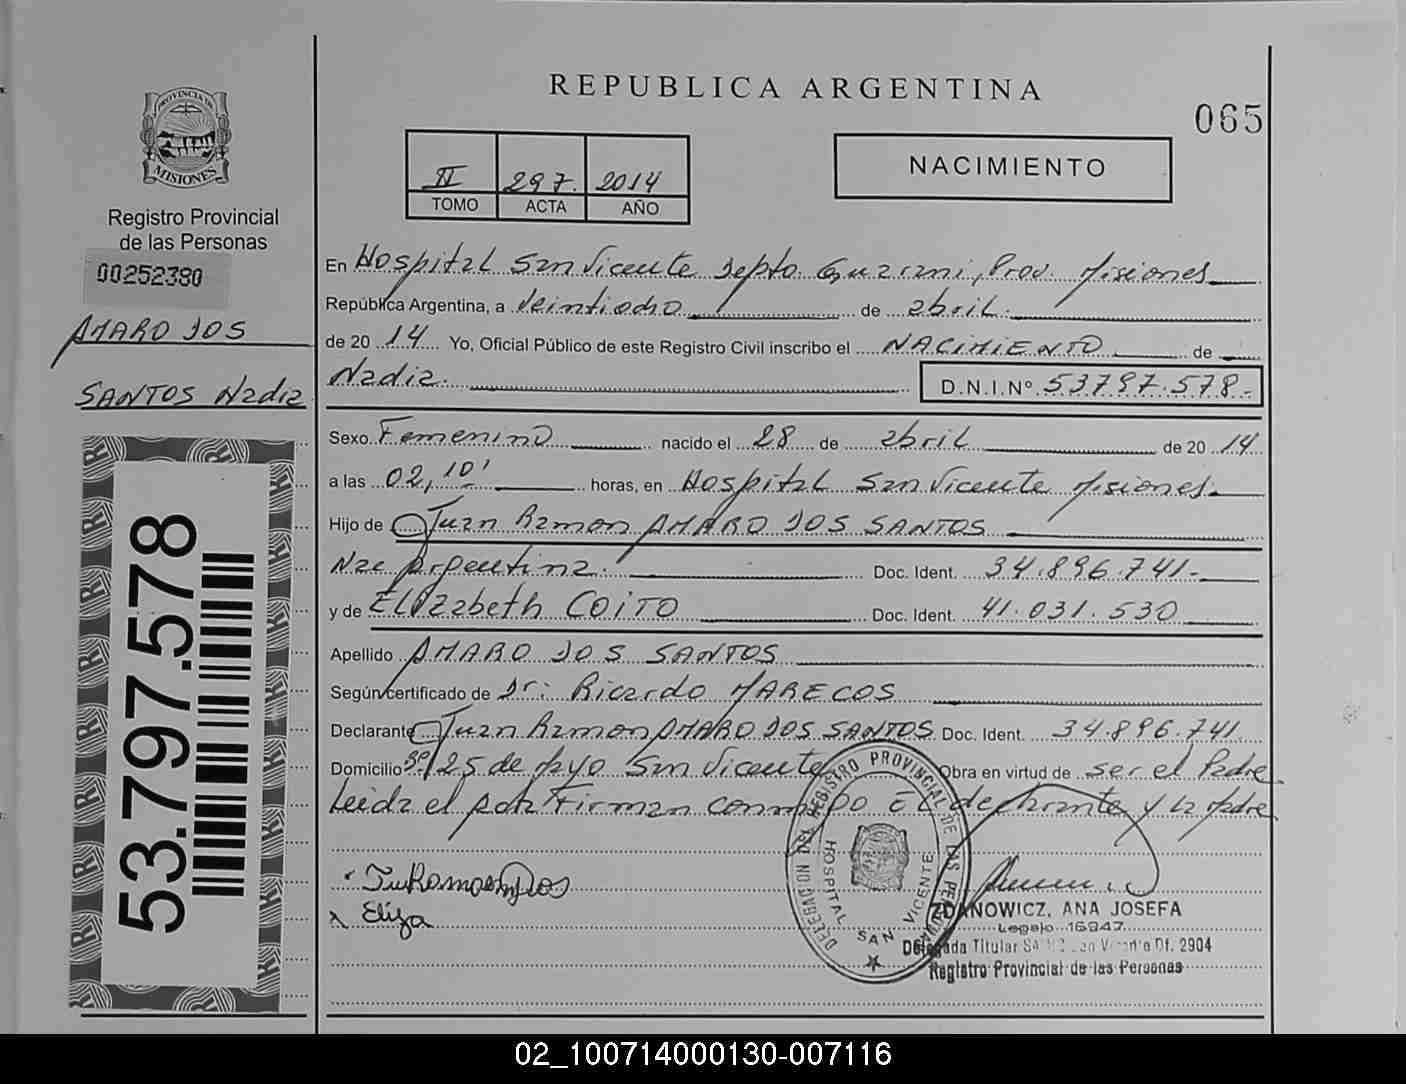 REPUBLICA ARGENTINA
065
PROVINCIA DE
MISIONES
Registro Provincial
de las Personas
00252380
AMARO DOS
SANTOS Nadia
53.797.578
II 297. 2014
TOMO ACTA AÑO
NACIMIENTO
En Hospital San Vicente Depto Guarani, Prov. Misiones
República Argentina, a Veintiocho de abril.
de 20 14 Yo, Oficial Público de este Registro Civil inscribo el NACIMIENTO de
Nadia. D.N.I.Nº 53797.578-
Sexo Femenino nacido el 28 de abril de 20 14
a las 02,10' horas, en Hospital San Vicente Misiones.
Hijo de Juan Ramon AMARO DOS SANTOS
Nac Argentina. Doc. Ident. 34.896.741-
y de Elizabeth COITO Doc. Ident. 41.031.530
Apellido AMARO DOS SANTOS
Según certificado de Dr: Ricardo MARECOS
Declarante Juan Ramon AMARO DOS SANTOS Doc. Ident. 34.896.741.
Domicilio 25 de Mayo San Vicente Obra en virtud de ser el Padre
Leida el acta Firman conmigo El declarante y la Madre
Eliza
DELEGACION DEL REGISTRO PROVINCIAL DE LAS PERSONAS
HOSPITAL SAN VICENTE
ZDANOWICZ, ANA JOSEFA
Legajo 16947
Delegada Titular Df. 2904
Registro Provincial de las Personas
02_100714000130-007116